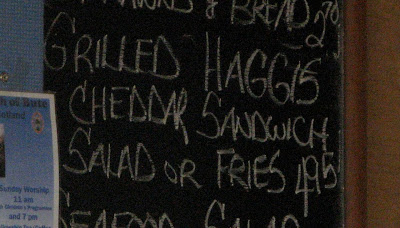 & BREAD
GRILLED HAGGIS
CHEDDAR SANDWICH
SALAD OR FRIES 495
SEAFOOD SALAD
h of Bute
otland
Sunday Worship
11 am
and 7 pm